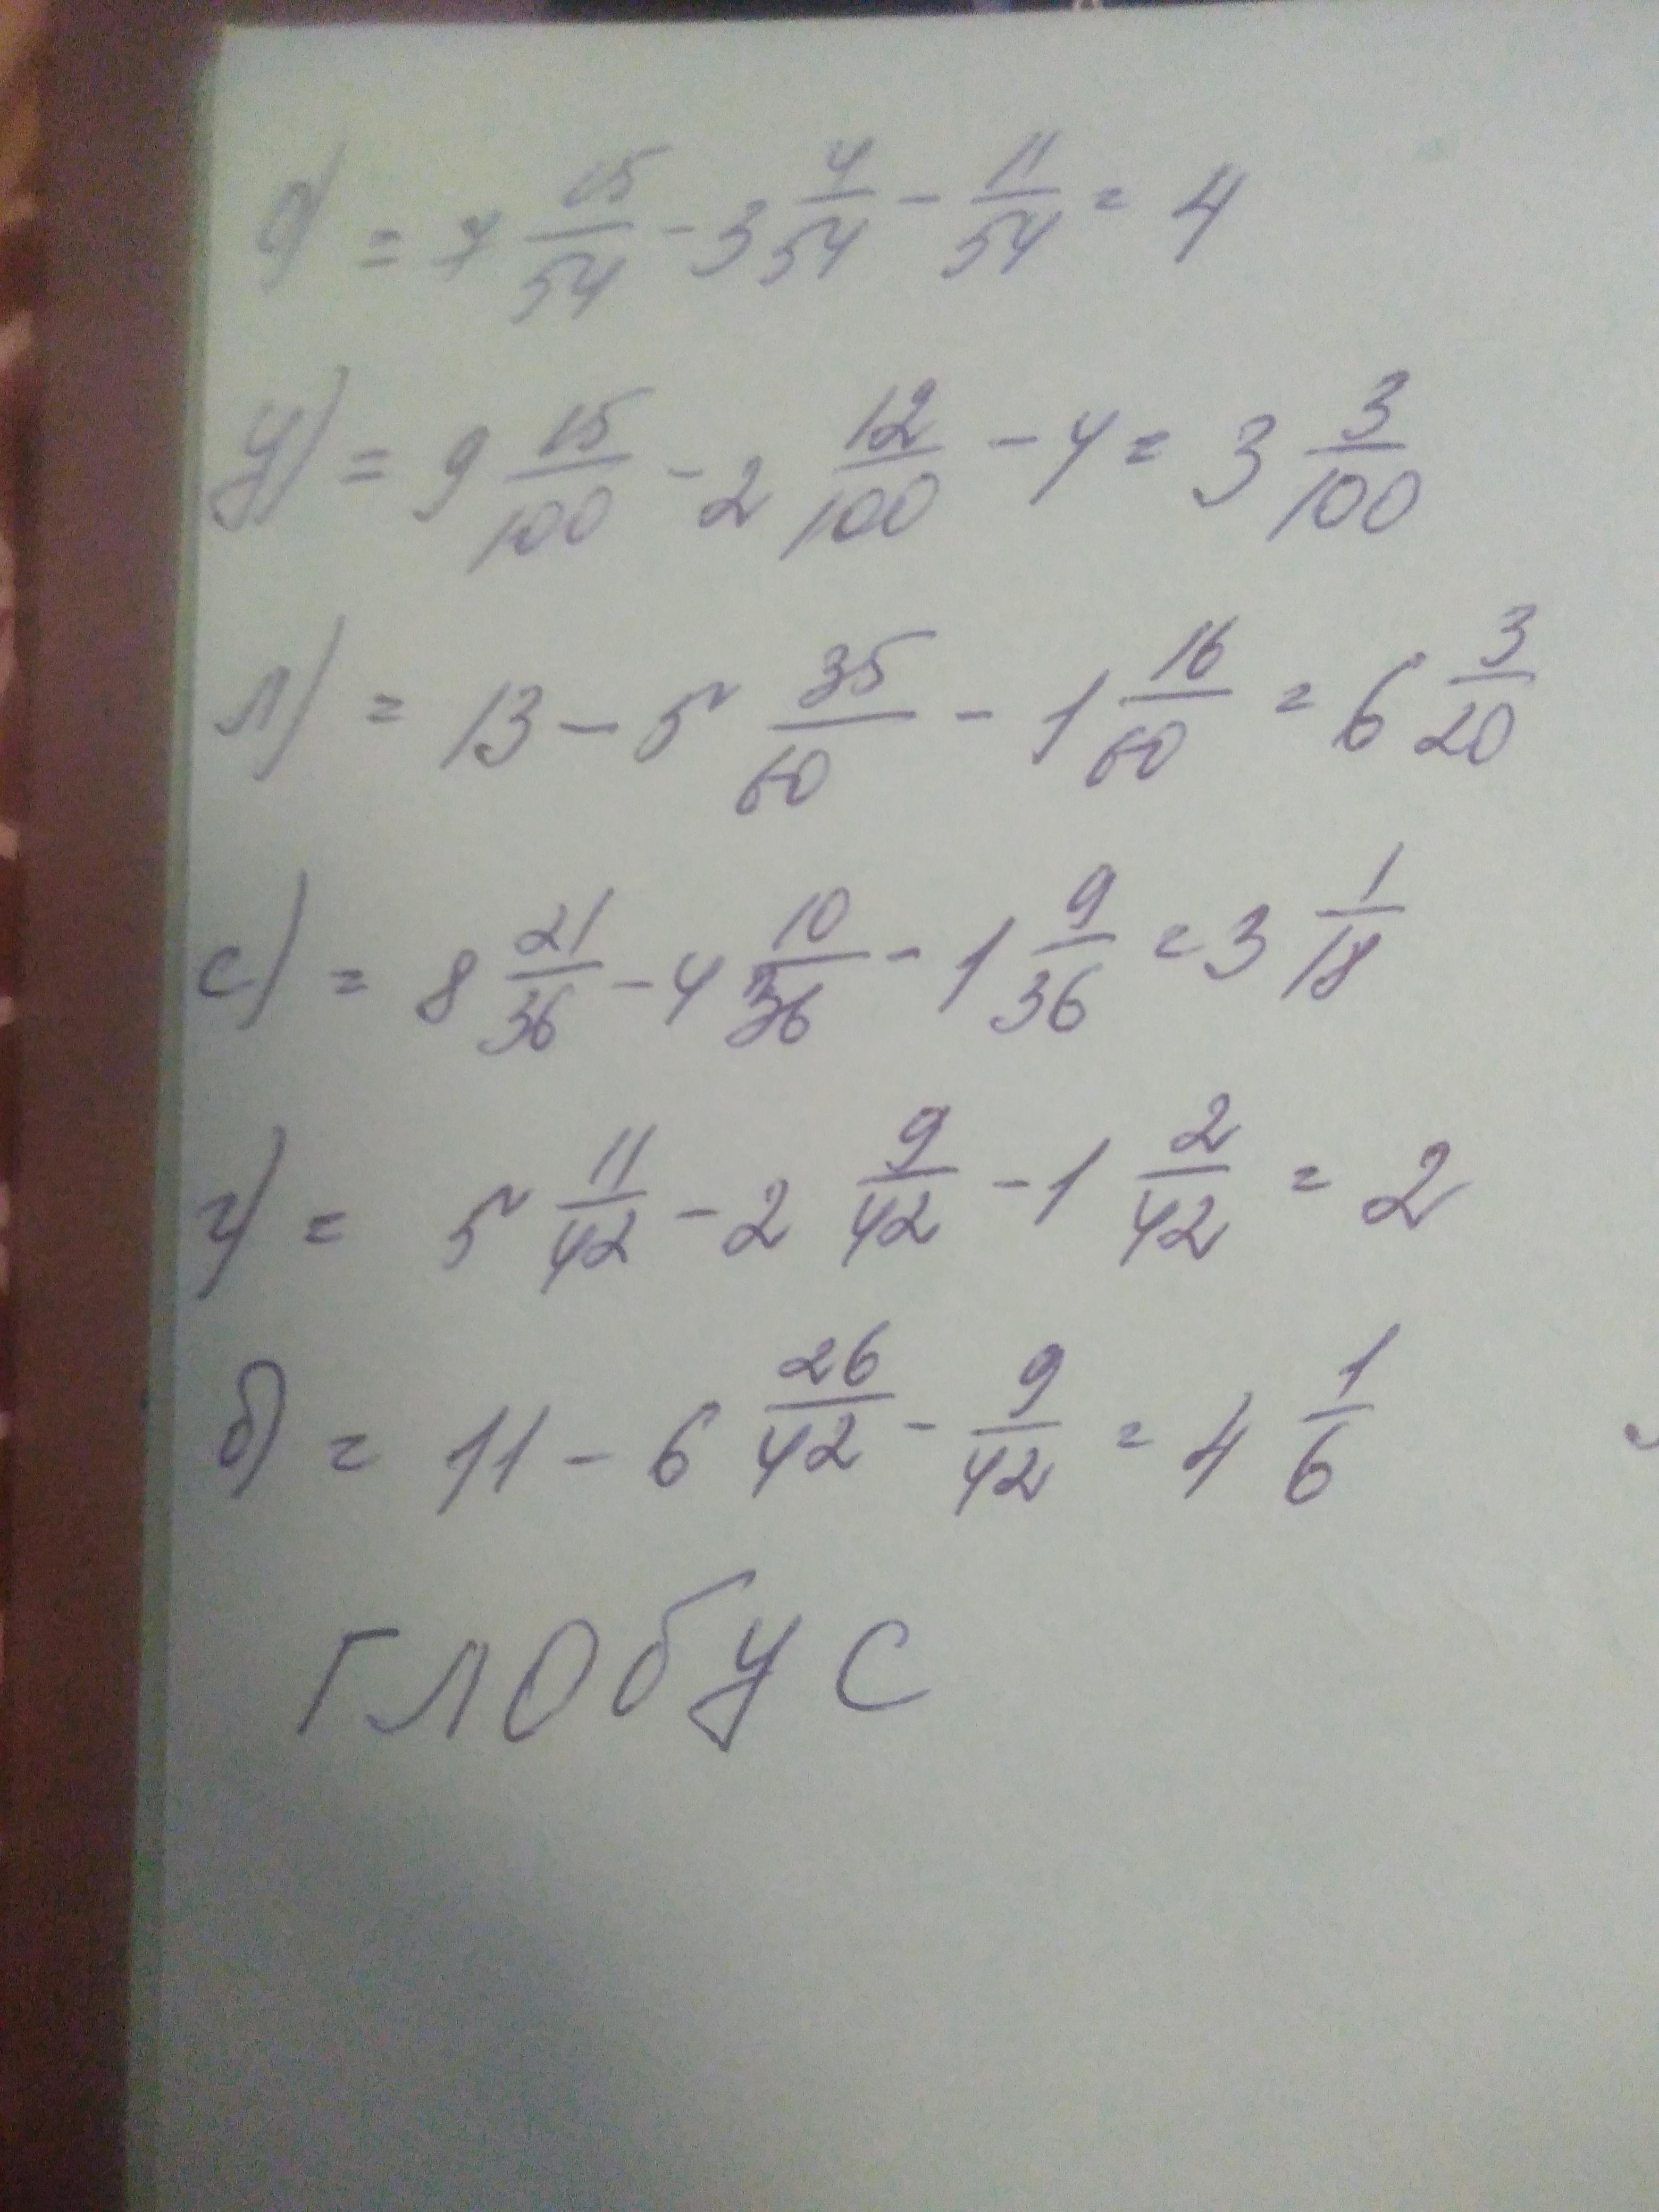 о) = 7 15/54 - 3 4/54 - 11/54 = 4
у) = 9 15/100 - 2 12/100 - 4 = 3 3/100
л) = 13 - 5 35/60 - 1 16/60 = 6 3/20
с) = 8 21/36 - 4 10/36 - 1 9/36 = 3 1/18
г) = 5 11/42 - 2 9/42 - 1 2/42 = 2
б) = 11 - 6 26/42 - 9/42 = 4 1/6
глобус